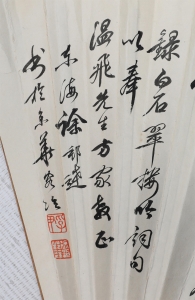 録白石翠楼吟词句
以奉
温飛先生方家教正
东海徐邦達
书於京華客次